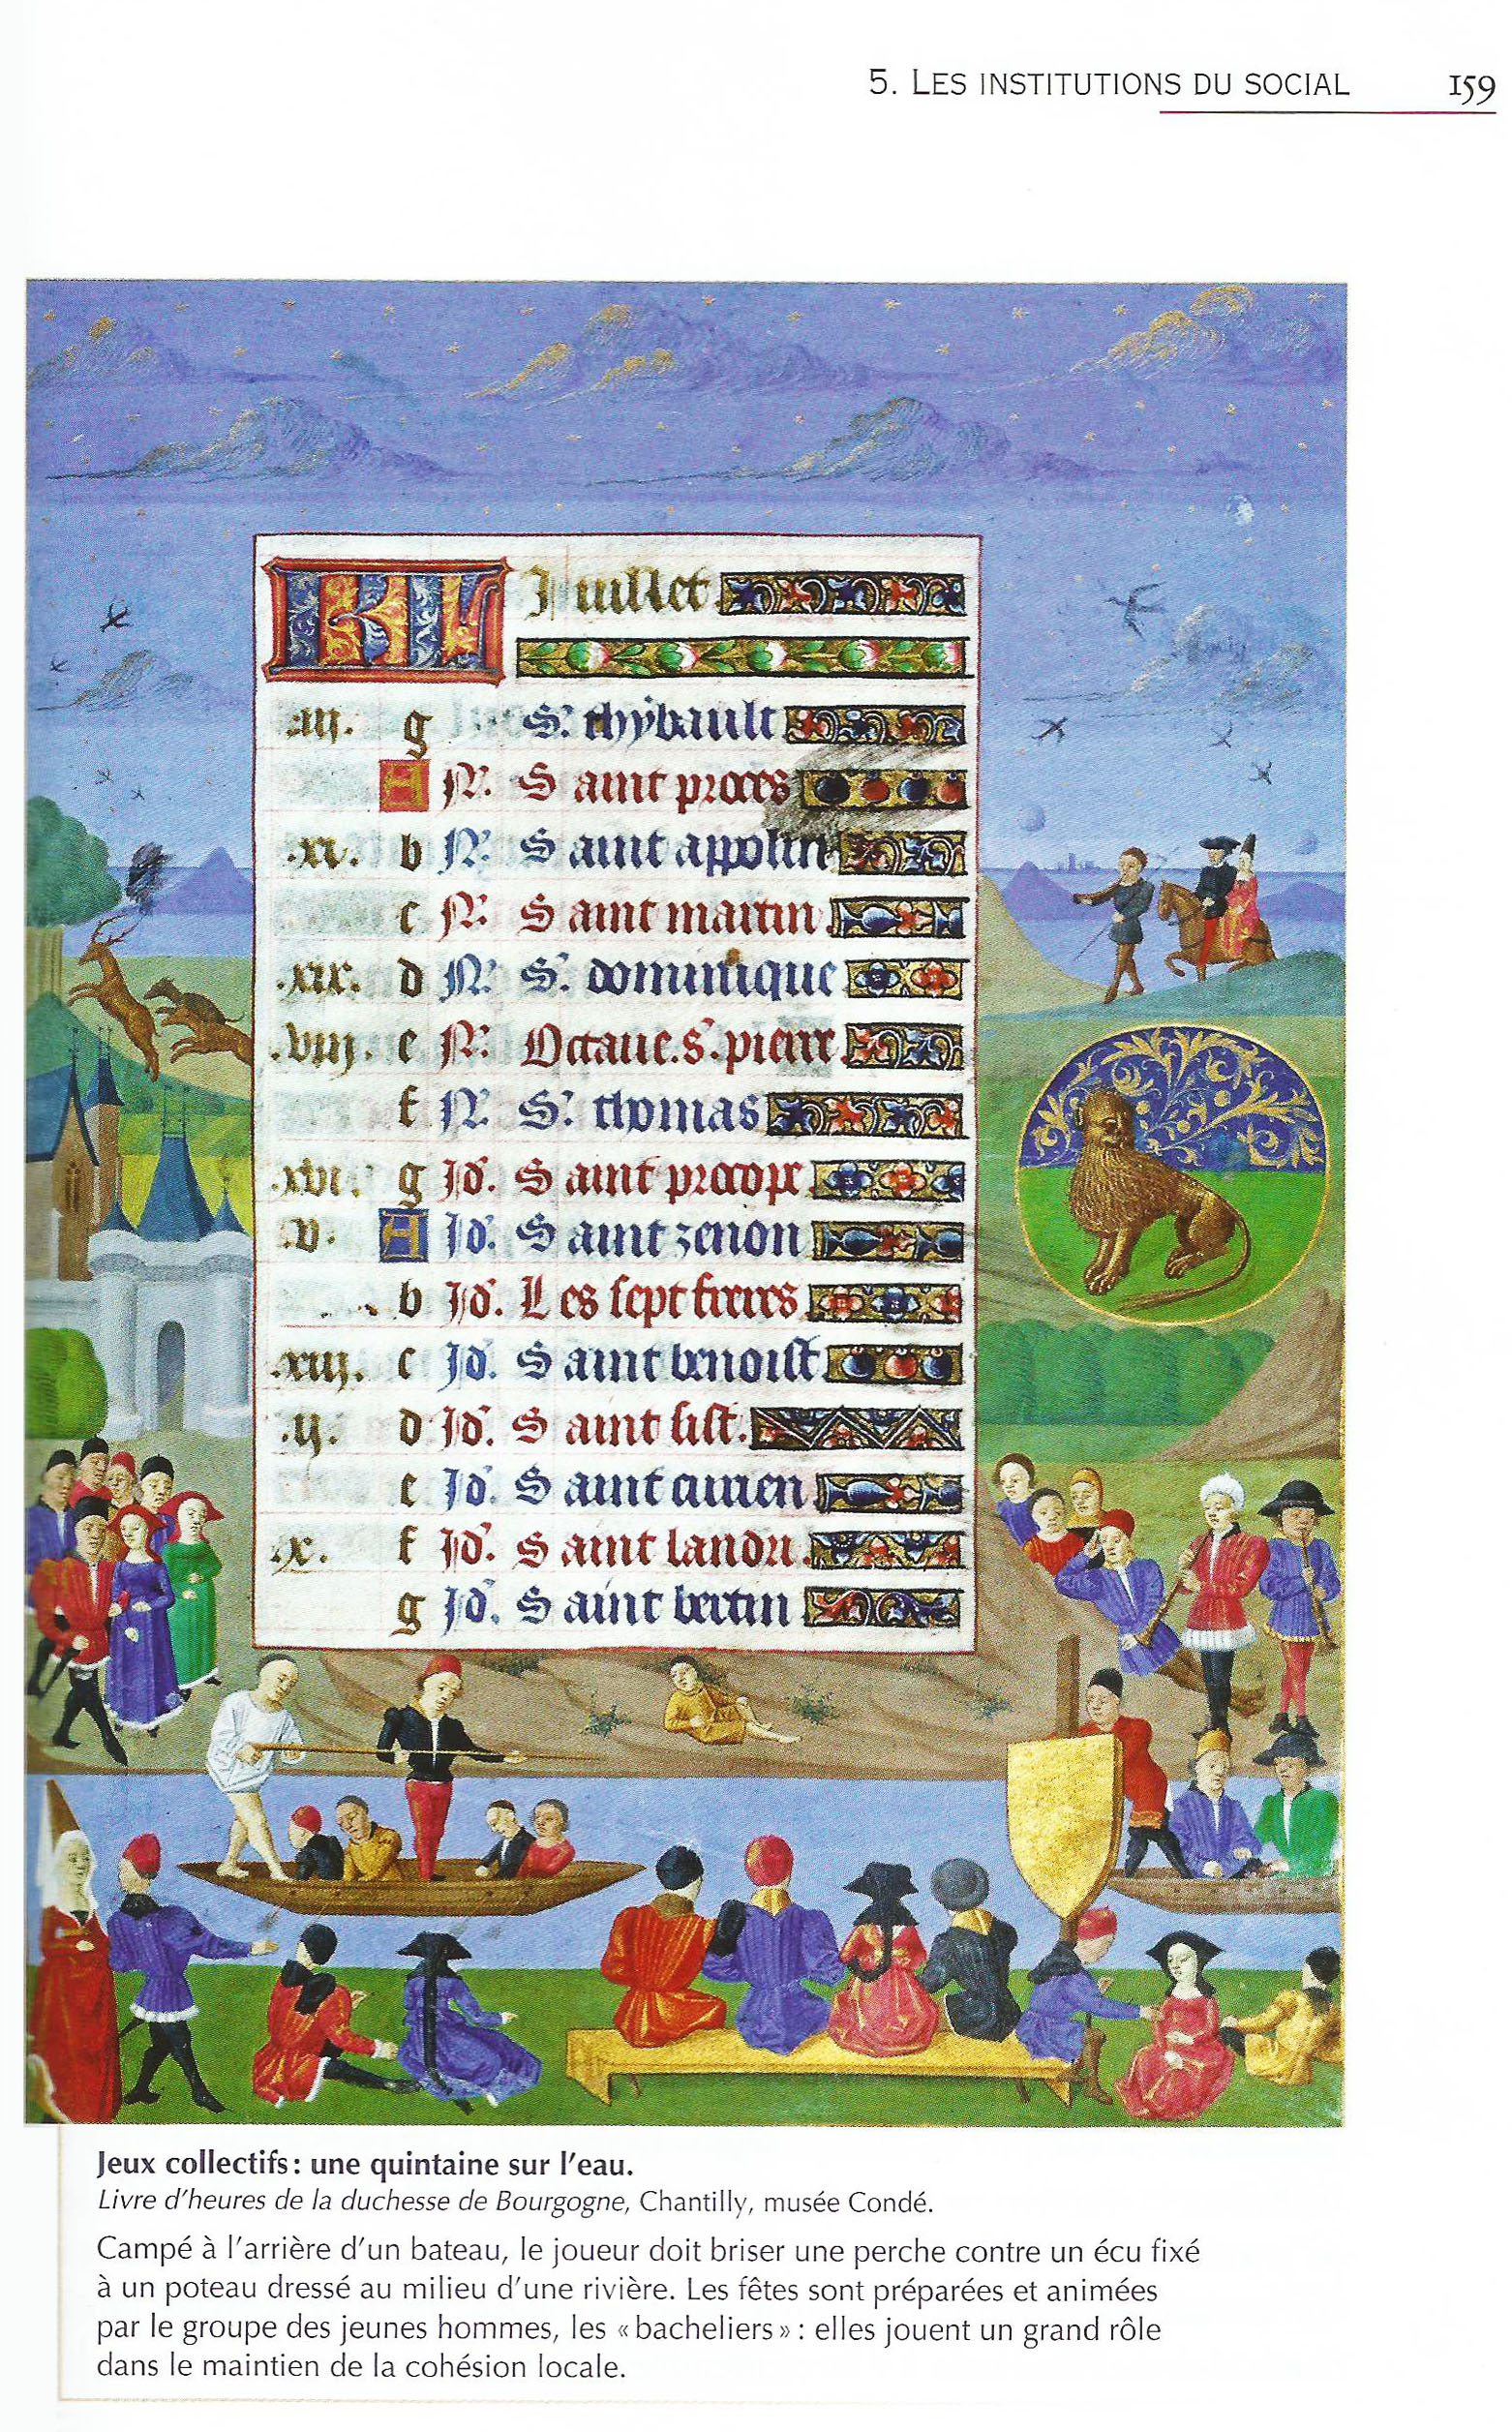 5. LES INSTITUTIONS DU SOCIAL 159
KL Juillet
.iii. g S. thybault
A N. Saint proces
.xi. b N. Saint appolin
c N. Saint martin
.xix. d N. S. dominique
.viii. e N. Octaue.s.pierre
f N. S. thomas
.xvi. g Id. Saint procope
.v. A Id. Saint zenon
b Id. Les sept freres
.xiii. c Id. Saint benoist
.ii. d Id. Saint sist.
e Id. Saint
.x. f Id. Saint landri
g Id. Saint bertin
Jeux collectifs : une quintaine sur l'eau.
Livre d'heures de la duchesse de Bourgogne, Chantilly, musée Condé.
Campé à l'arrière d'un bateau, le joueur doit briser une perche contre un écu fixé
à un poteau dressé au milieu d'une rivière. Les fêtes sont préparées et animées
par le groupe des jeunes hommes, les « bacheliers » : elles jouent un grand rôle
dans le maintien de la cohésion locale.